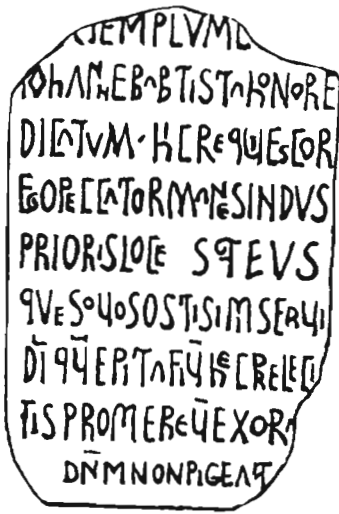 TEMPLVM
IOHANNE BABTISTA HONORE
DICATVM · HIC REQUIESCOR
EGO PECCATOR MANESINDVS
PRIORIS LOCI
QVESO UOS OSTISIMSERUI
DĪ QŪ EPITAFIŪ HEC RELECI
TIS PRO MEREŪ EXOR
DN̄M NON PIGEAT